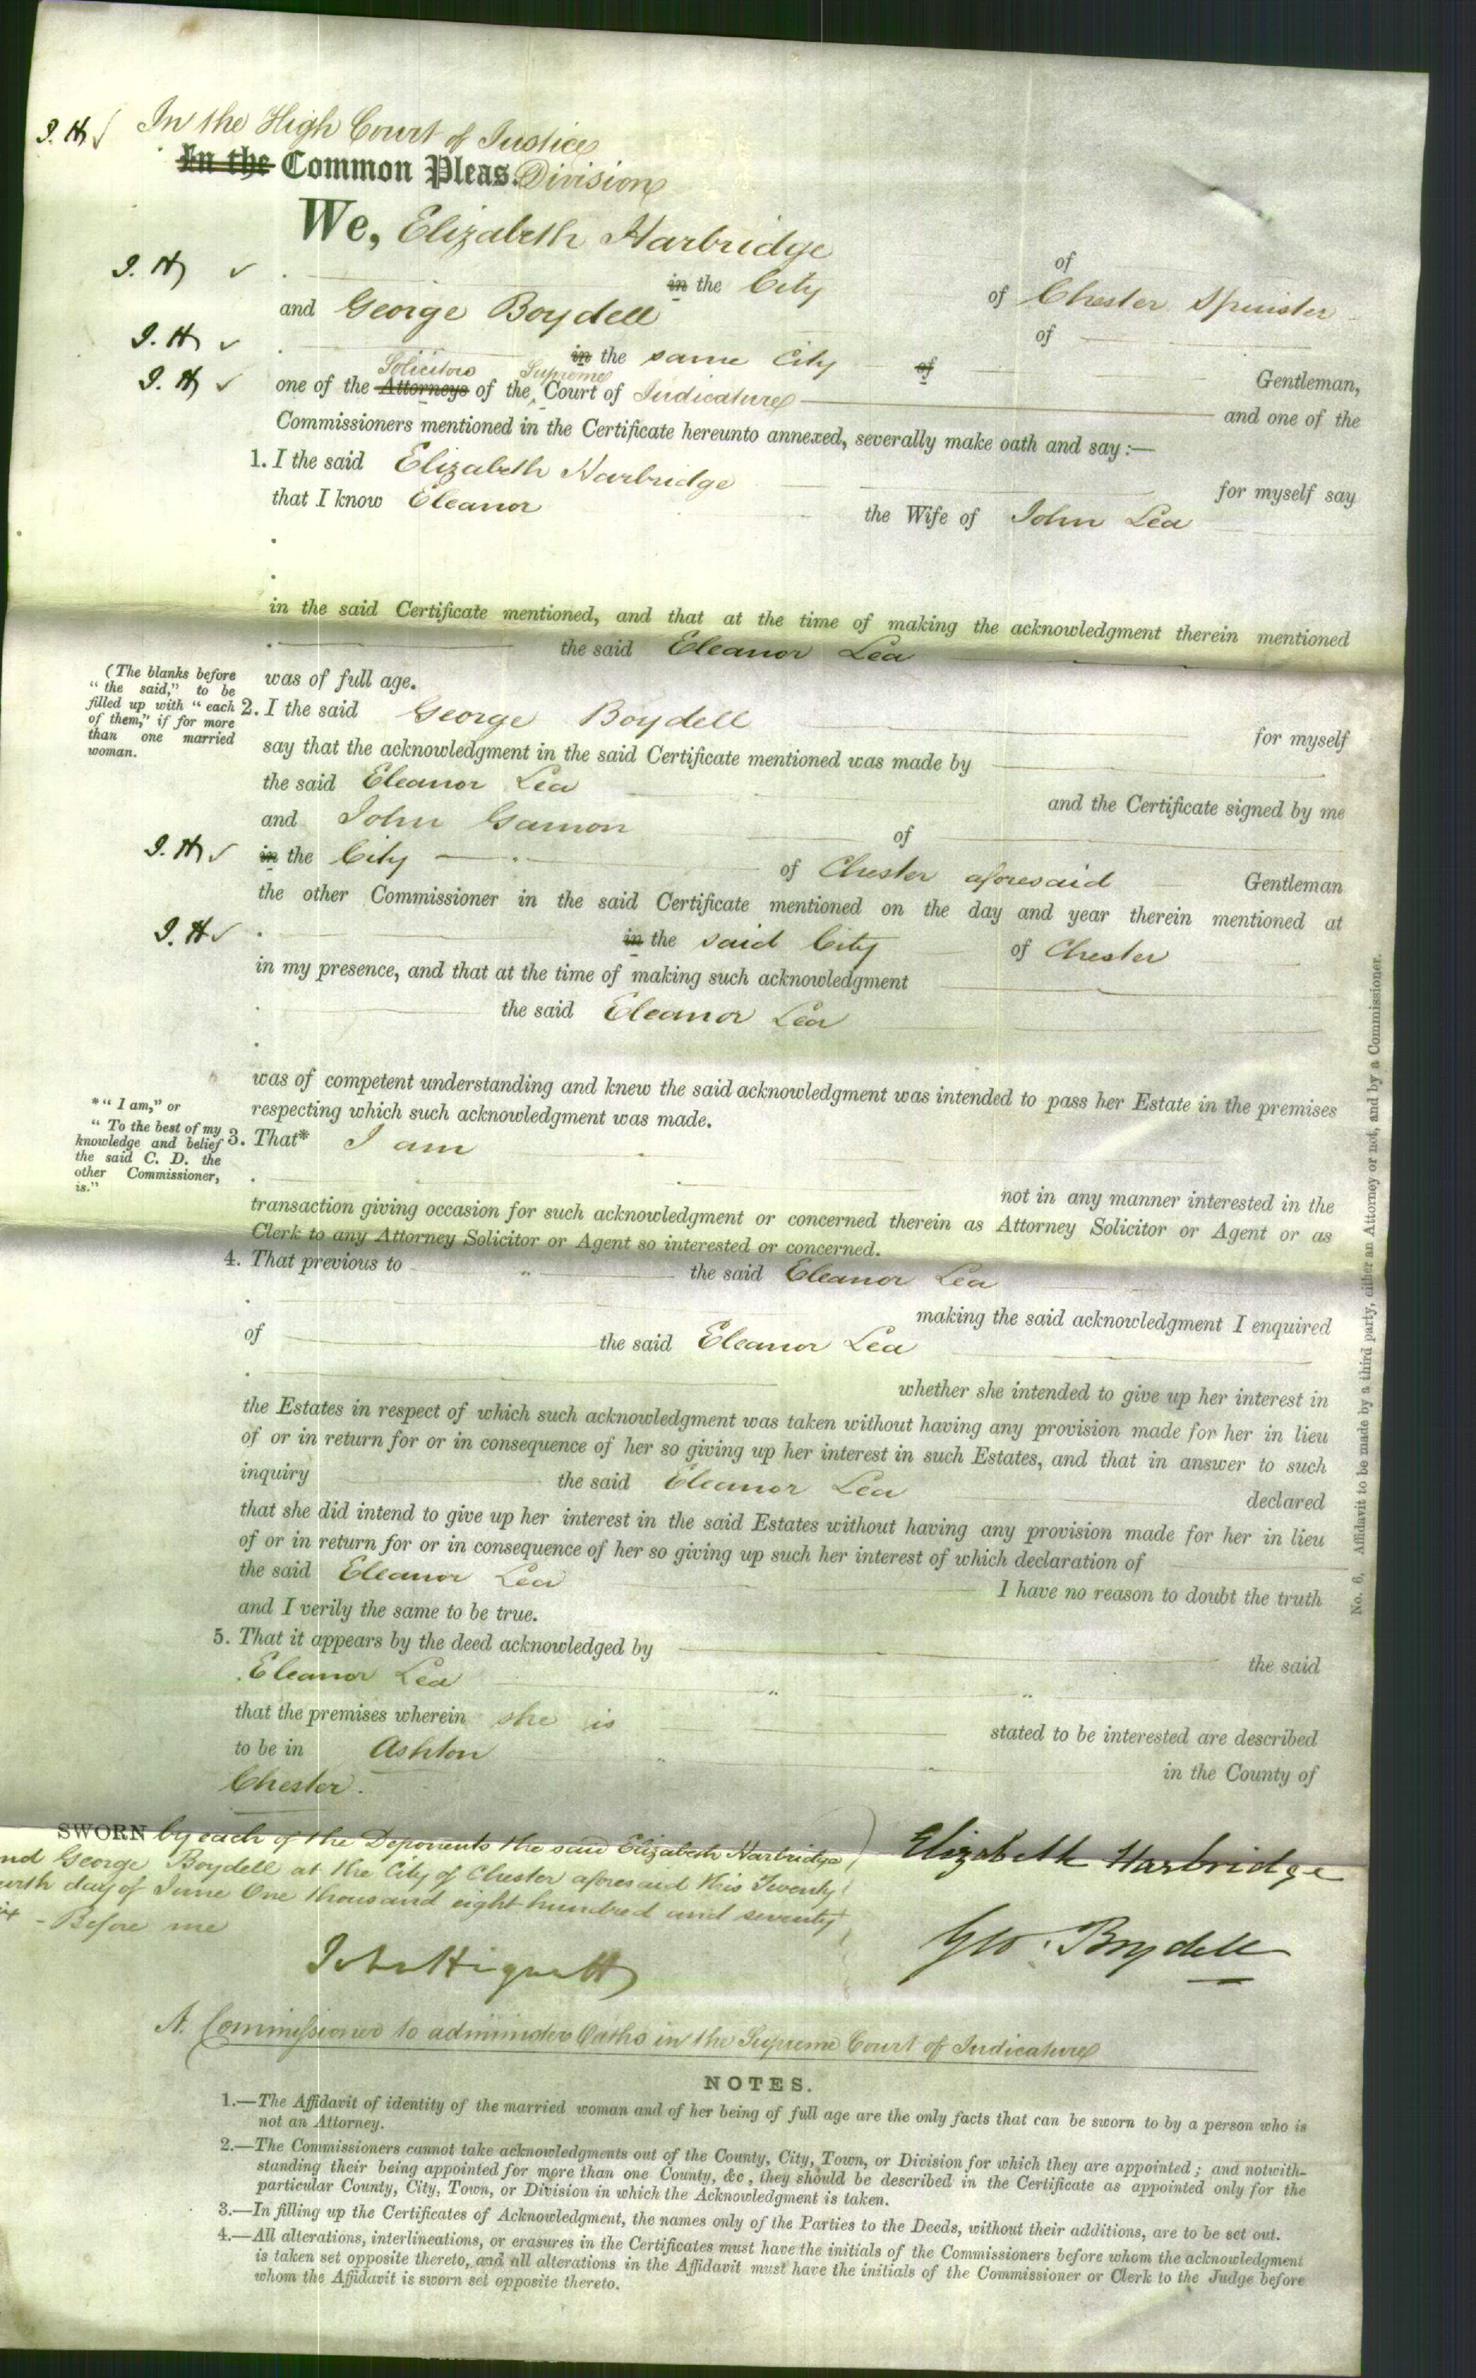 In the High Court of Justice
J. H
In the Common Pleas. Division
We, Elizabeth Harbridge
of
J. H
in the City of Chester Spinster
and George Boydell
of
J. H
in the same City of Gentleman,
Solicitors Supreme
J. H
one of the Attorneys of the Court of Judicature and one of the
Commissioners mentioned in the Certificate hereunto annexed, severally make oath and say:—
1. I the said Elizabeth Harbridge for myself say
that I know Eleanor the Wife of John Lea
in the said Certificate mentioned, and that at the time of making the acknowledgment therein mentioned
the said Eleanor Lea
was of full age.
(The blanks before
"the said," to be
filled up with "each
of them," if for more
than one married
woman.
2. I the said George Boydell for myself
say that the acknowledgment in the said Certificate mentioned was made by
the said Eleanor Lea and the Certificate signed by me
and John Gamon of
J. H
in the City of Chester aforesaid Gentleman
the other Commissioner in the said Certificate mentioned on the day and year therein mentioned at
J. H
in the said City of Chester
in my presence, and that at the time of making such acknowledgment
the said Eleanor Lea
was of competent understanding and knew the said acknowledgment was intended to pass her Estate in the premises
respecting which such acknowledgment was made.
*"I am," or
"To the best of my
knowledge and belief
the said C. D. the
other Commissioner,
is."
3. That* I am
not in any manner interested in the
transaction giving occasion for such acknowledgment or concerned therein as Attorney Solicitor or Agent or as
Clerk to any Attorney Solicitor or Agent so interested or concerned.
4. That previous to the said Eleanor Lea
making the said acknowledgment I enquired
of the said Eleanor Lea
whether she intended to give up her interest in
the Estates in respect of which such acknowledgment was taken without having any provision made for her in lieu
of or in return for or in consequence of her so giving up her interest in such Estates, and that in answer to such
inquiry the said Eleanor Lea declared
that she did intend to give up her interest in the said Estates without having any provision made for her in lieu
of or in return for or in consequence of her so giving up such her interest of which declaration of
the said Eleanor Lea I have no reason to doubt the truth
and I verily the same to be true.
5. That it appears by the deed acknowledged by the said
Eleanor Lea
that the premises wherein she is stated to be interested are described
to be in Ashton in the County of
Chester.
No. 6, Affidavit to be made by a third party, either an Attorney or not, and by a Commissioner.
SWORN by each of the Deponents the said Elizabeth Harbridge
nd George Boydell at the City of Chester aforesaid this Twenty
urth day of June One thousand eight hundred and seventy
ix - Before me
Elizabeth Harbridge
Geo. Boydell
John Hignett
A Commissioner to administer Oaths in the Supreme Court of Judicature
NOTES.
1.—The Affidavit of identity of the married woman and of her being of full age are the only facts that can be sworn to by a person who is
not an Attorney.
2.—The Commissioners cannot take acknowledgments out of the County, City, Town, or Division for which they are appointed; and notwith-
standing their being appointed for more than one County, &c, they should be described in the Certificate as appointed only for the
particular County, City, Town, or Division in which the Acknowledgment is taken.
3.—In filling up the Certificates of Acknowledgment, the names only of the Parties to the Deeds, without their additions, are to be set out.
4.—All alterations, interlineations, or erasures in the Certificates must have the initials of the Commissioners before whom the acknowledgment
is taken set opposite thereto, and all alterations in the Affidavit must have the initials of the Commissioner or Clerk to the Judge before
whom the Affidavit is sworn set opposite thereto.